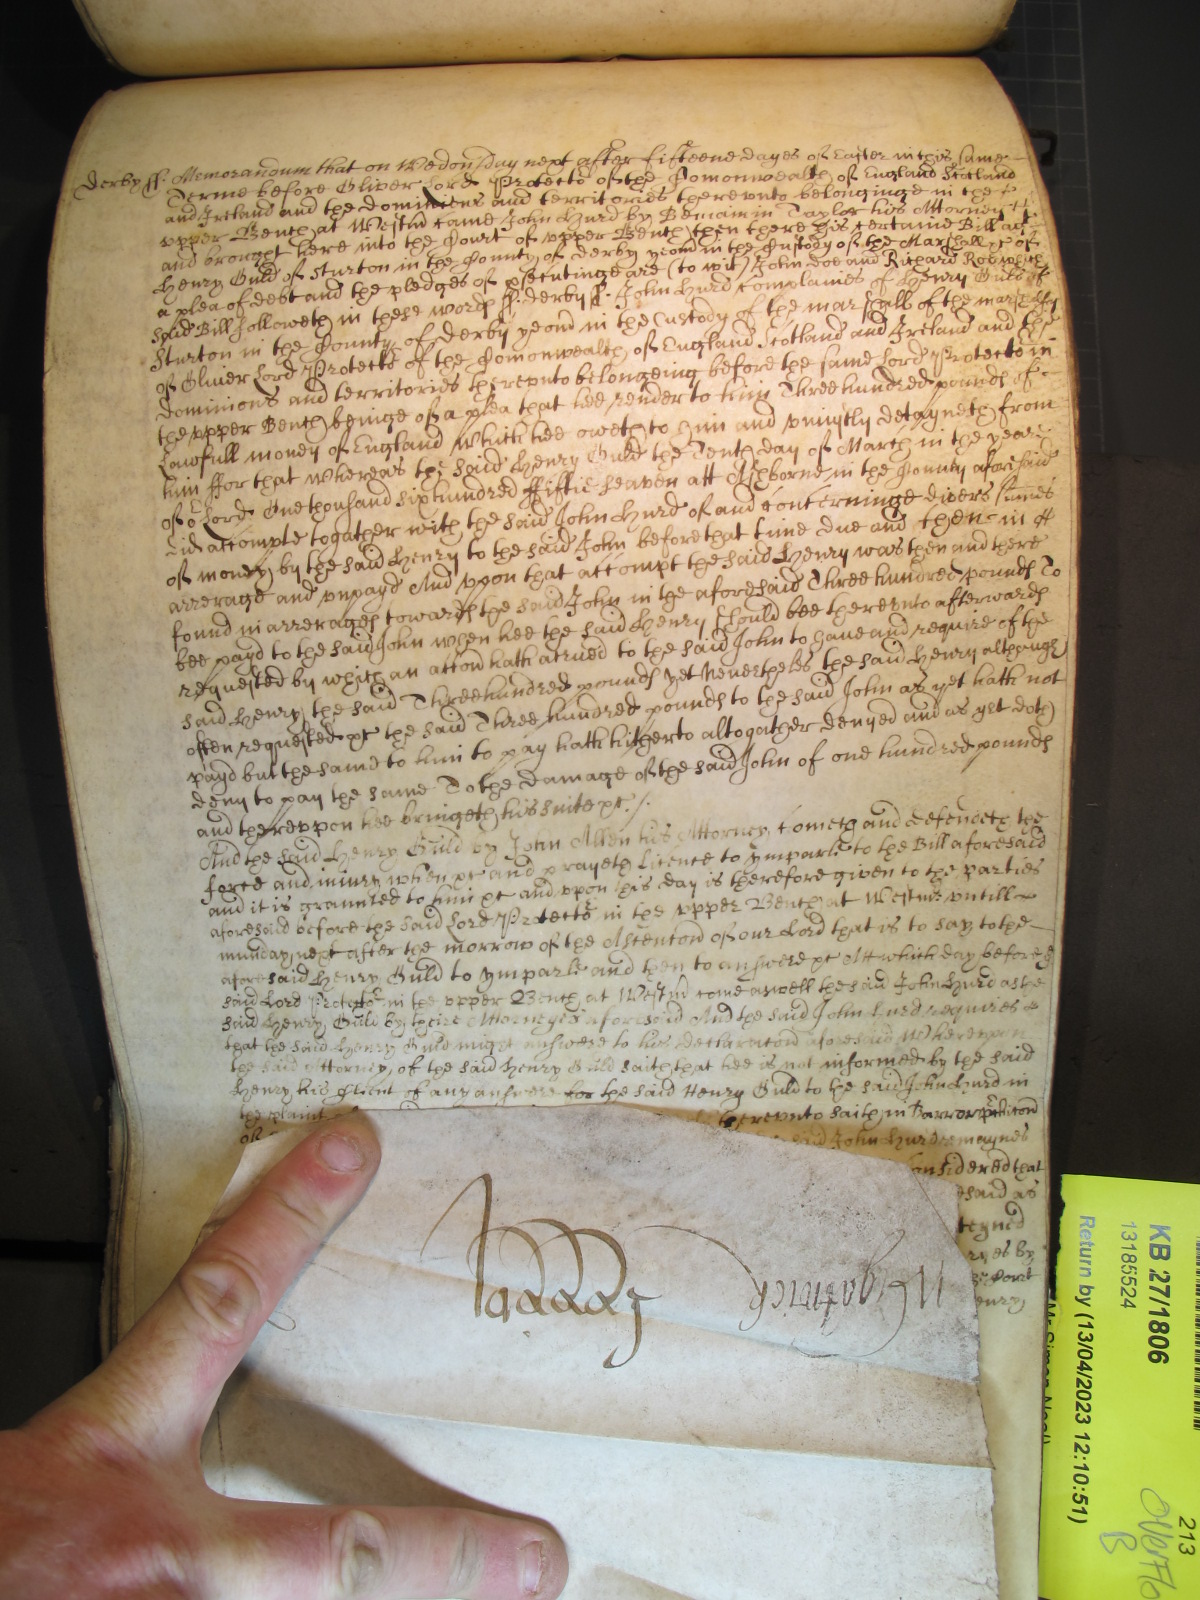 Derby ss. Memorandum that on Wedonsday next after fifteene dayes of Easter in this same
Terme before Oliver Lord Protector of the Comonwealth of England Scotland
and Ireland and the dominions and territories thereunto belonginge in the
upper Bench at Westm came John Hurd by Beniamin Taylor his Attorney
and brought here into the Court of upper Bench then there his certaine Bill agt
Henry Guld of Sturton in the County of Derby yeom in the Custody of the Marshall &c of
a plea of debt and the pledges of psentinge are (to wit) John Doe and Richard Roe which
said Bill followeth in these words ss. derby ss. John Hurd complaines of Henry Guld of
Sturton in the County of Derby yeom in the Custody of the marshall of the marshalsy
of Oliver Lord Protector of the Comonwealth of England Scotland and Ireland and the
dominions and territories thereunto belongeing before the same Lord Protector in
the upper Bench beinge of a plea that hee render to him Three hundred pounds of
Lawfull money of England which hee oweth to him and uniustly detayneth from
him ffor that whereas the said Henry Guld the Tenth day of March in the yeare
of or Lord One thousand six hundred ffiftie seaven att Ashborne in the County aforesaid
did accompte togather with the said John Hurd of and concerninge divers sumes
of money by the said Henry to the said John before that time due and then in
arrerage and unpayd And upon that accompt the said Henry was then and there
found in arrerages towards the said John in the aforesaid Three hundred pounds To
bee payd to the said John when hee the said Henry should bee thereunto afterwards
requested by which an accon hath acrued to the said John to have and require of the
said Henry the said Three hundred pounds yet Neverthelss the said Henry although
often requested &c the said Three hundred pounds to the said John as yet hath not
payd but the same to him to pay hath hitherto altogather denyed and as yet doth
deny to pay the same To the damage of the said John of one hundred pounds
and thereupon hee bringeth his suite &c. /.
And the said Henry Guld by John Allen his Attorney cometh and defendeth the
force and iniury when &c and prayeth licence to ymparle to the Bill aforesaid
and it is graunted to him &c and upon this day is therefore given to the parties
aforesaid before the said Lord Protector in the upper Bench at Westmr untill
munday next after the morrow of the Ascencon of our Lord that is to say to the
aforesaid Henry Guld to ymparle and then to answere &c Att which day before the
said Lord Protector in the upper Bench at Westm come aswell the said John Hurd as the
said Henry Guld by theire Attorneyes aforesaid And the said John Hurd requires
that the said Henry Guld might answere to his declaracon aforesaid Whereupon
the said Attorney of the said Henry Guld saith that hee is not informed by the said
Henry his Client of any answere for the said Henry Guld to the said John Hurd in
the plaint thereunto saith in
said John Hurd remaynes
considered that
esaid as
by
Court
enry
KB 27/1806
13185524
Return by (13/04/2023 12:10:51)
213
Overflo
B